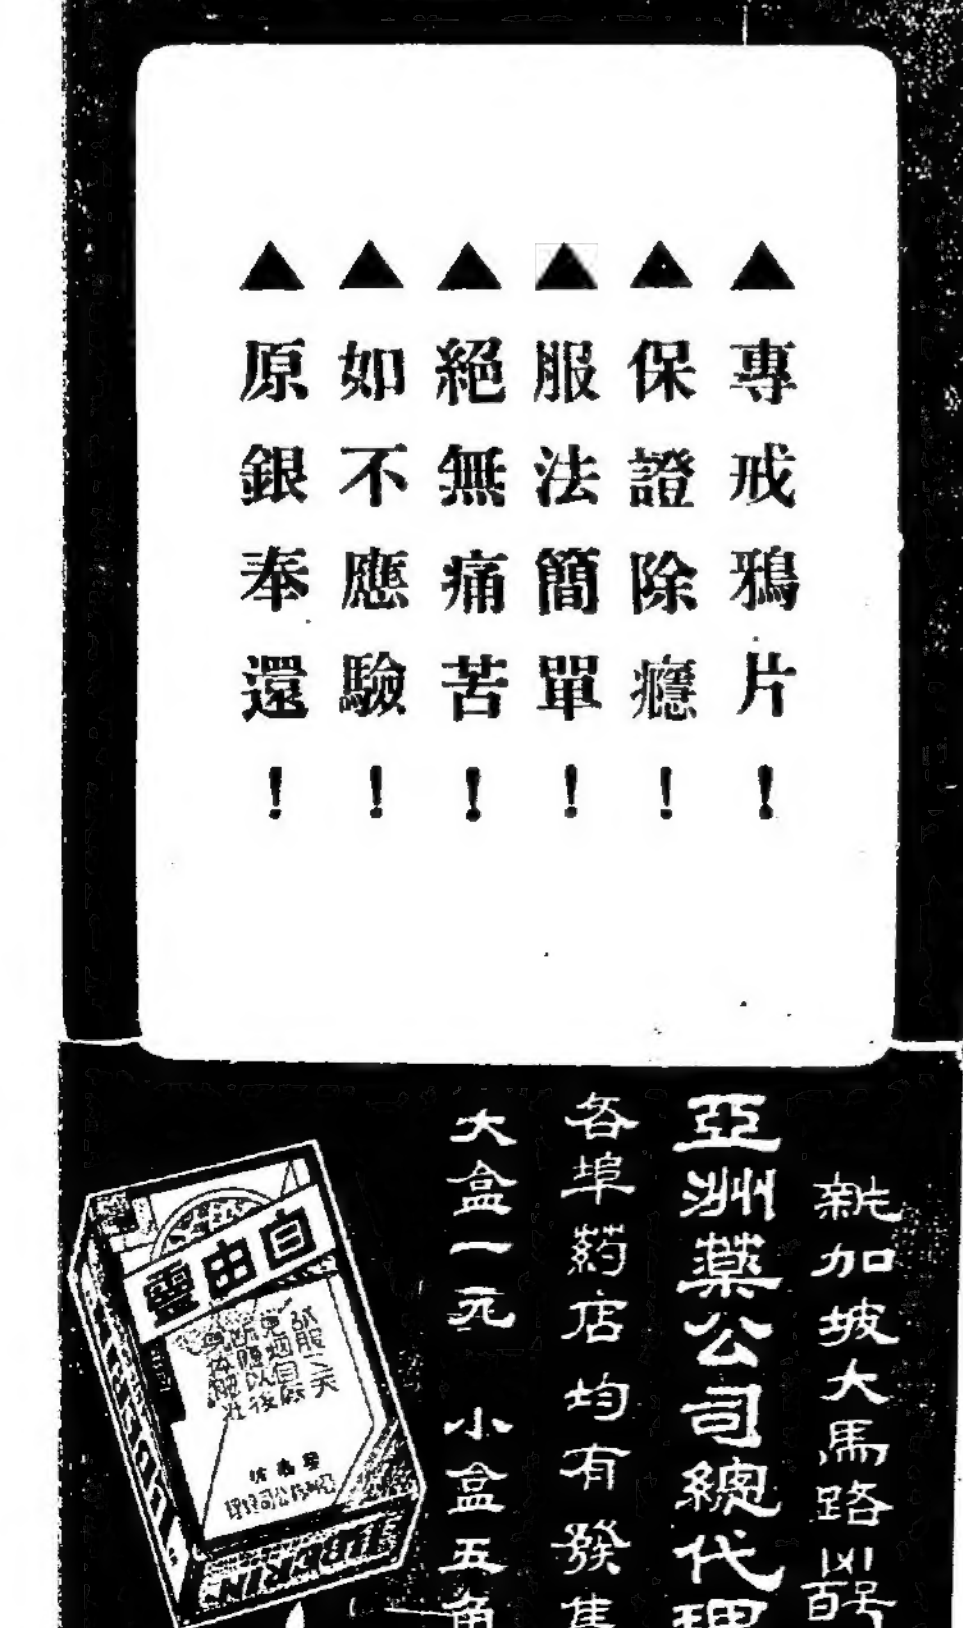 ▲專戒鴉片!
▲保證除癮!
▲服法簡單!
▲絕無痛苦!
▲如不應驗!
▲原銀奉還!
加坡大馬路
亞洲藥公司總代理
各埠葯店均有發售
大盒一元 小盒五角
自由靈